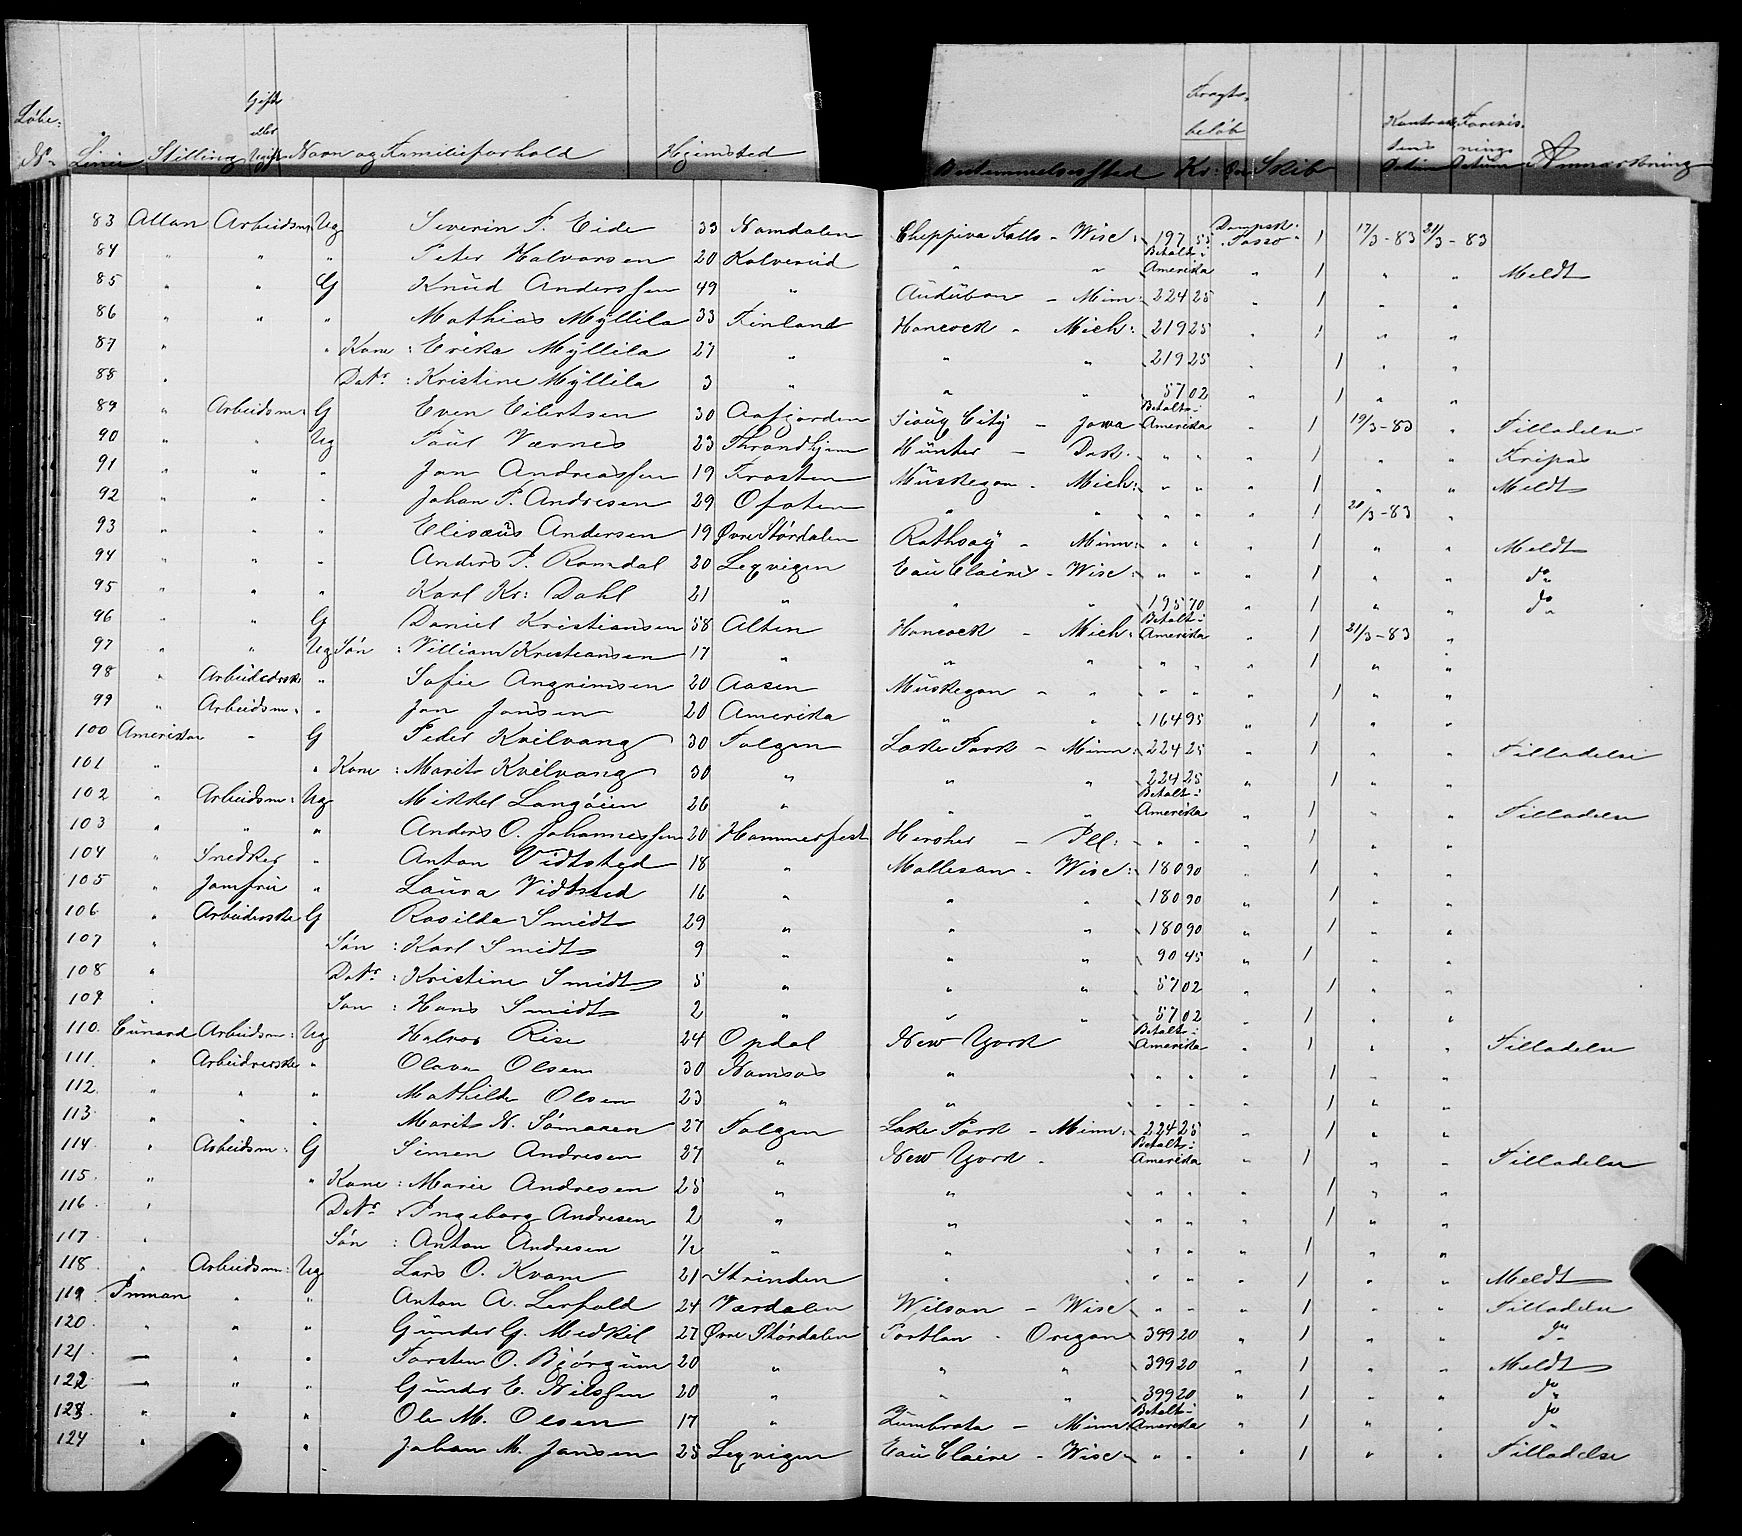 Løbe: Gift Fragts
eller beløb Kontrak Forevis
tens nings
N. Linie Stilling Ugift Navn og Familieforhold Hjemsted Bestemmelsessted Kr: Øre Skib Datum Datum Anmærkning
83 Allan Arbeidsm: Ug Severin P. Eide 33 Namdalen Cheppiva Falls - Wisc: 197 55 Dampsk. Tasso 1 17/3-83 21/3-83
84 " " " Peter Halvorsen 20 Kolvereid " " Betalt i Amerika " 1 " " Meldt
85 " " G Knud Anderssen 49 " Audubon - Minn: 224 25 " 1 " "
86 " " " Mathias Myllila 33 Finland Hancock - Mich: 219 25 " 1 " "
87 " " Kone : Erika Myllila 27 " " " 219 25 " 1 " "
88 " Datr : Kristine Myllila 3 " " " 57 02 " 1 " "
89 " Arbeidsm: G Even Eilertsen 30 Aafjorden Siouy City - Jowa Betalt i Amerika " 1 19/3-83 " Tilladelse
90 " " Ug Paul Værnes 23 Throndhjem Hunter - Dak. " " " 1 " " Fripas
91 " " " Jon Andreassen 19 Frosten Muskegon - Mich: " " " 1 " " Meldt
92 " " " Johan P. Andresen 29 Ofoten " " " " " 1 20/3-83 "
93 " " " Elisæus Andersen 19 Øvre Størdalen Rothsay - Minn: " " " 1 " " Meldt
94 " " " Anders P. Ramdal 20 Lexvigen Eau Claire - Wisc: " " " 1 " " do
95 " " " Karl Kr: Dahl 21 " " " 195 70 " 1 " " do
96 " " G Daniel Kristiansen 58 Alten Hancock - Mich: Betalt i Amerika " 1 21/3-83 "
97 " " Ug Søn : William Kristiansen 17 " " " " " " 1 " "
98 " Arbeiderske " Sofie Angrimsen 20 Aasen Muskegon - " " " " 1 " "
99 " Arbeidsm: " Jon Jonsen 20 Amerika " " 164 95 " 1 " "
100 Amerikan " G Peder Kvilvang 30 Tolgen Lake Park - Minn: 224 25 " 1 " " Tilladelse
101 " " Kone : Marit Kvilvang 30 " " " 224 25 " 1 " "
102 " Arbeidsm: Ug Mikkel Langøien 26 " " " Betalt i Amerika " 1 " " Tilladelse
103 " " " Anders O. Johannessen 20 Hammerfest Hersher - Ill: " " " 1 " "
104 " Snedker " Anton Vidtsted 18 " Mattesan - Wisc: 180 90 " 1 " "
105 " Jomfru " Laura Vidtsted 16 " " " 180 90 " 1 " "
106 " Arbeiderske G Rasilda Smidt 29 " " " 180 90 " 1 " "
107 " Søn : Karl Smidt 9 " " " 90 45 " 1 " "
108 " Datr : Kristine Smidt 5 " " " 57 02 " 1 " "
109 " Søn : Hans Smidt 2 " " " 57 02 " 1 " "
110. Cunard Arbeidsm: Ug Halvor Rise 24 Opdal New York Betalt i Amerika " 1 " " Tilladelse
111. " Arbeiderske " Olava Olsen 30 Namsos " " " " 1 " "
112. " " " Mathilde Olsen 23 " " " " " 1 " "
113. " " " Marit N. Sømaaen 27 Tolgen Lake Park - Minn: 224 25 " 1 " "
114. " Arbeidsm: G Simen Andresen 27 " New York - Betalt i Amerika " 1 " " Tilladelse
115. " " Kone : Marie Andresen 25 " " " " " 1 " "
116. " Datr : Ingeborg Andresen 2 " " " " " 1 " "
117. " Søn : Anton Andresen 1/2 " " " " " 1 " "
118. " Arbeidsm: Ug Lars O. Kvam 21 Strinden " " " " 1 " " Meldt
119. Inman " " Anton A. Lerfald 24 Værdalen Wilson - Wisc " " " 1 " " Tilladelse
120. " " " Gunder G. Medkil 27 Øvre Størdalen Portlan - Oregon 399 20 " 1 " " do
121. — " " Torsten O. Bjørgum 20 " " " 399 20 " 1 " " Meldt
122 — " " Gunder E. Nilssen 20 " " " 399 20 " 1 " " do
123. " " " Ole M. Olsen 17 " Zumbrota - Minn: Betalt i Amerika " 1 " " do
124 " " Johan M. Jansen 25 Lexvigen Eau Claire - Wisc " " " 1 " " Tilladelse